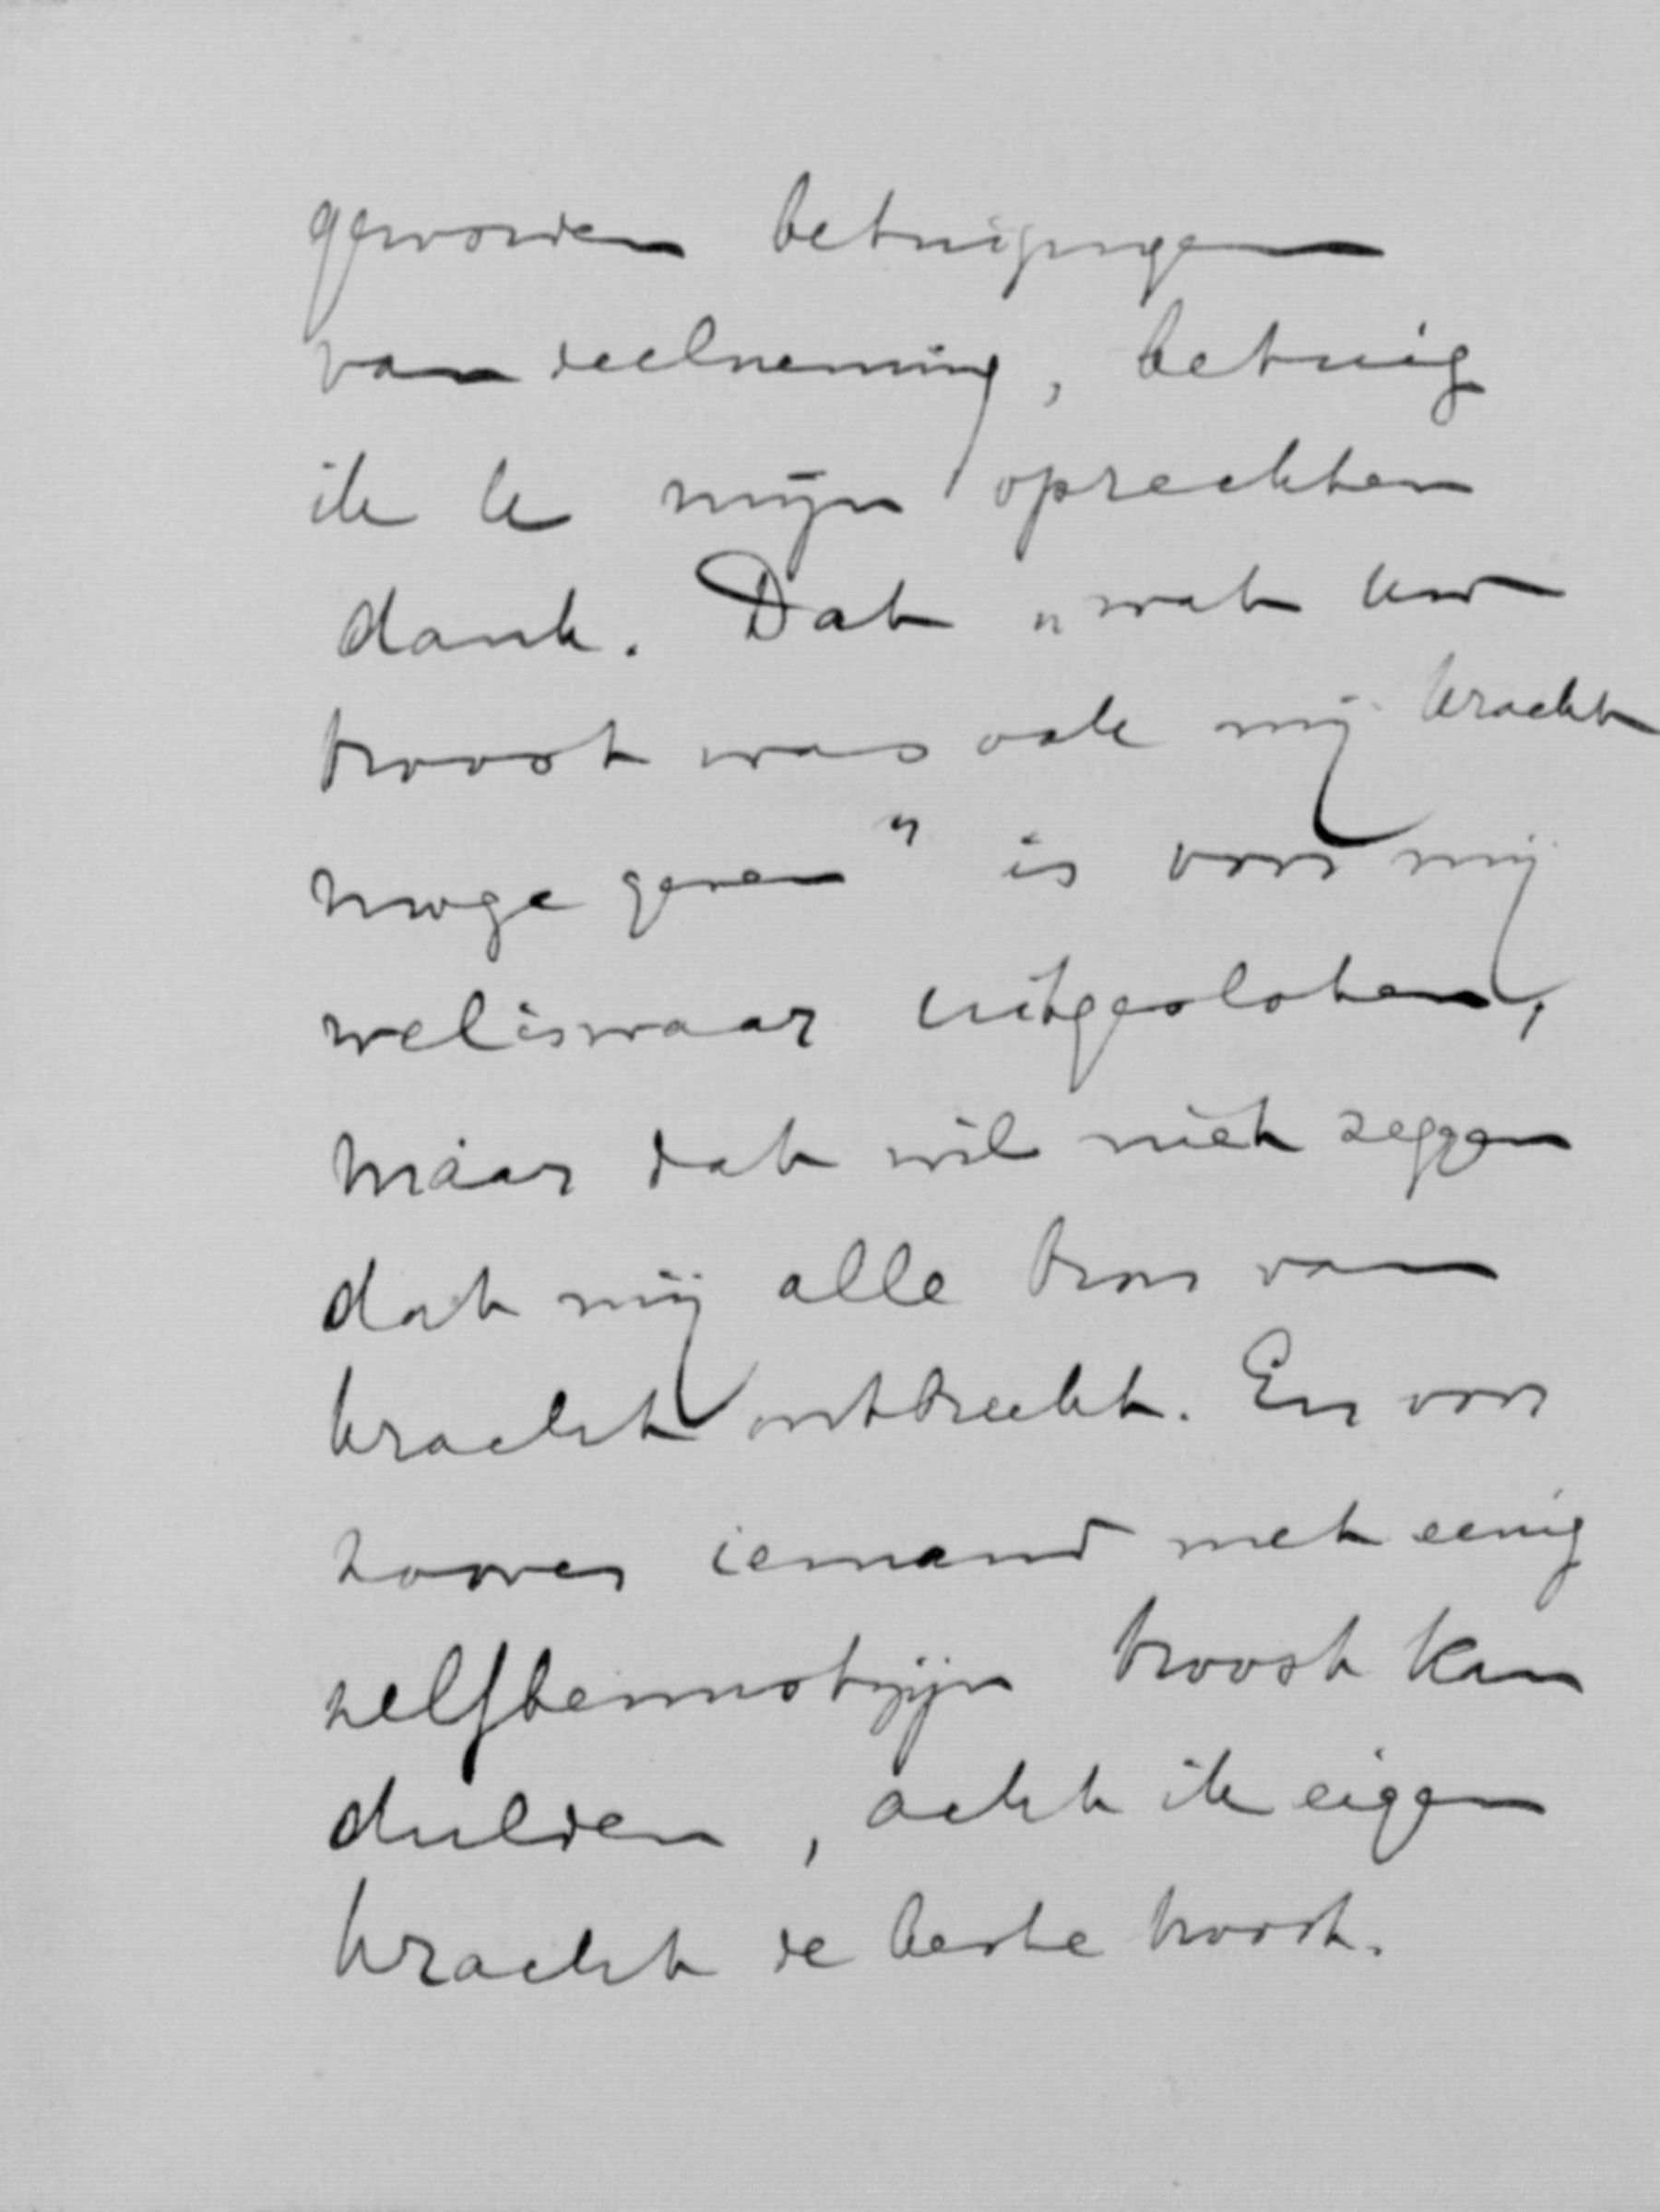 geworden betuigingen
van deelneming, betuig
ik U mijn oprechten
dank. Dat „wat Uw
troost was ook mij kracht
moge geven" is voor mij
weliswaar uitgesloten,
maar dat wil niet zeggen
dat mij alle bron van
kracht ontbreekt. En voor
zoover iemand met eenig
zelfbewustzijn troost kan
dulden, acht ik eigen
kracht de beste troost.